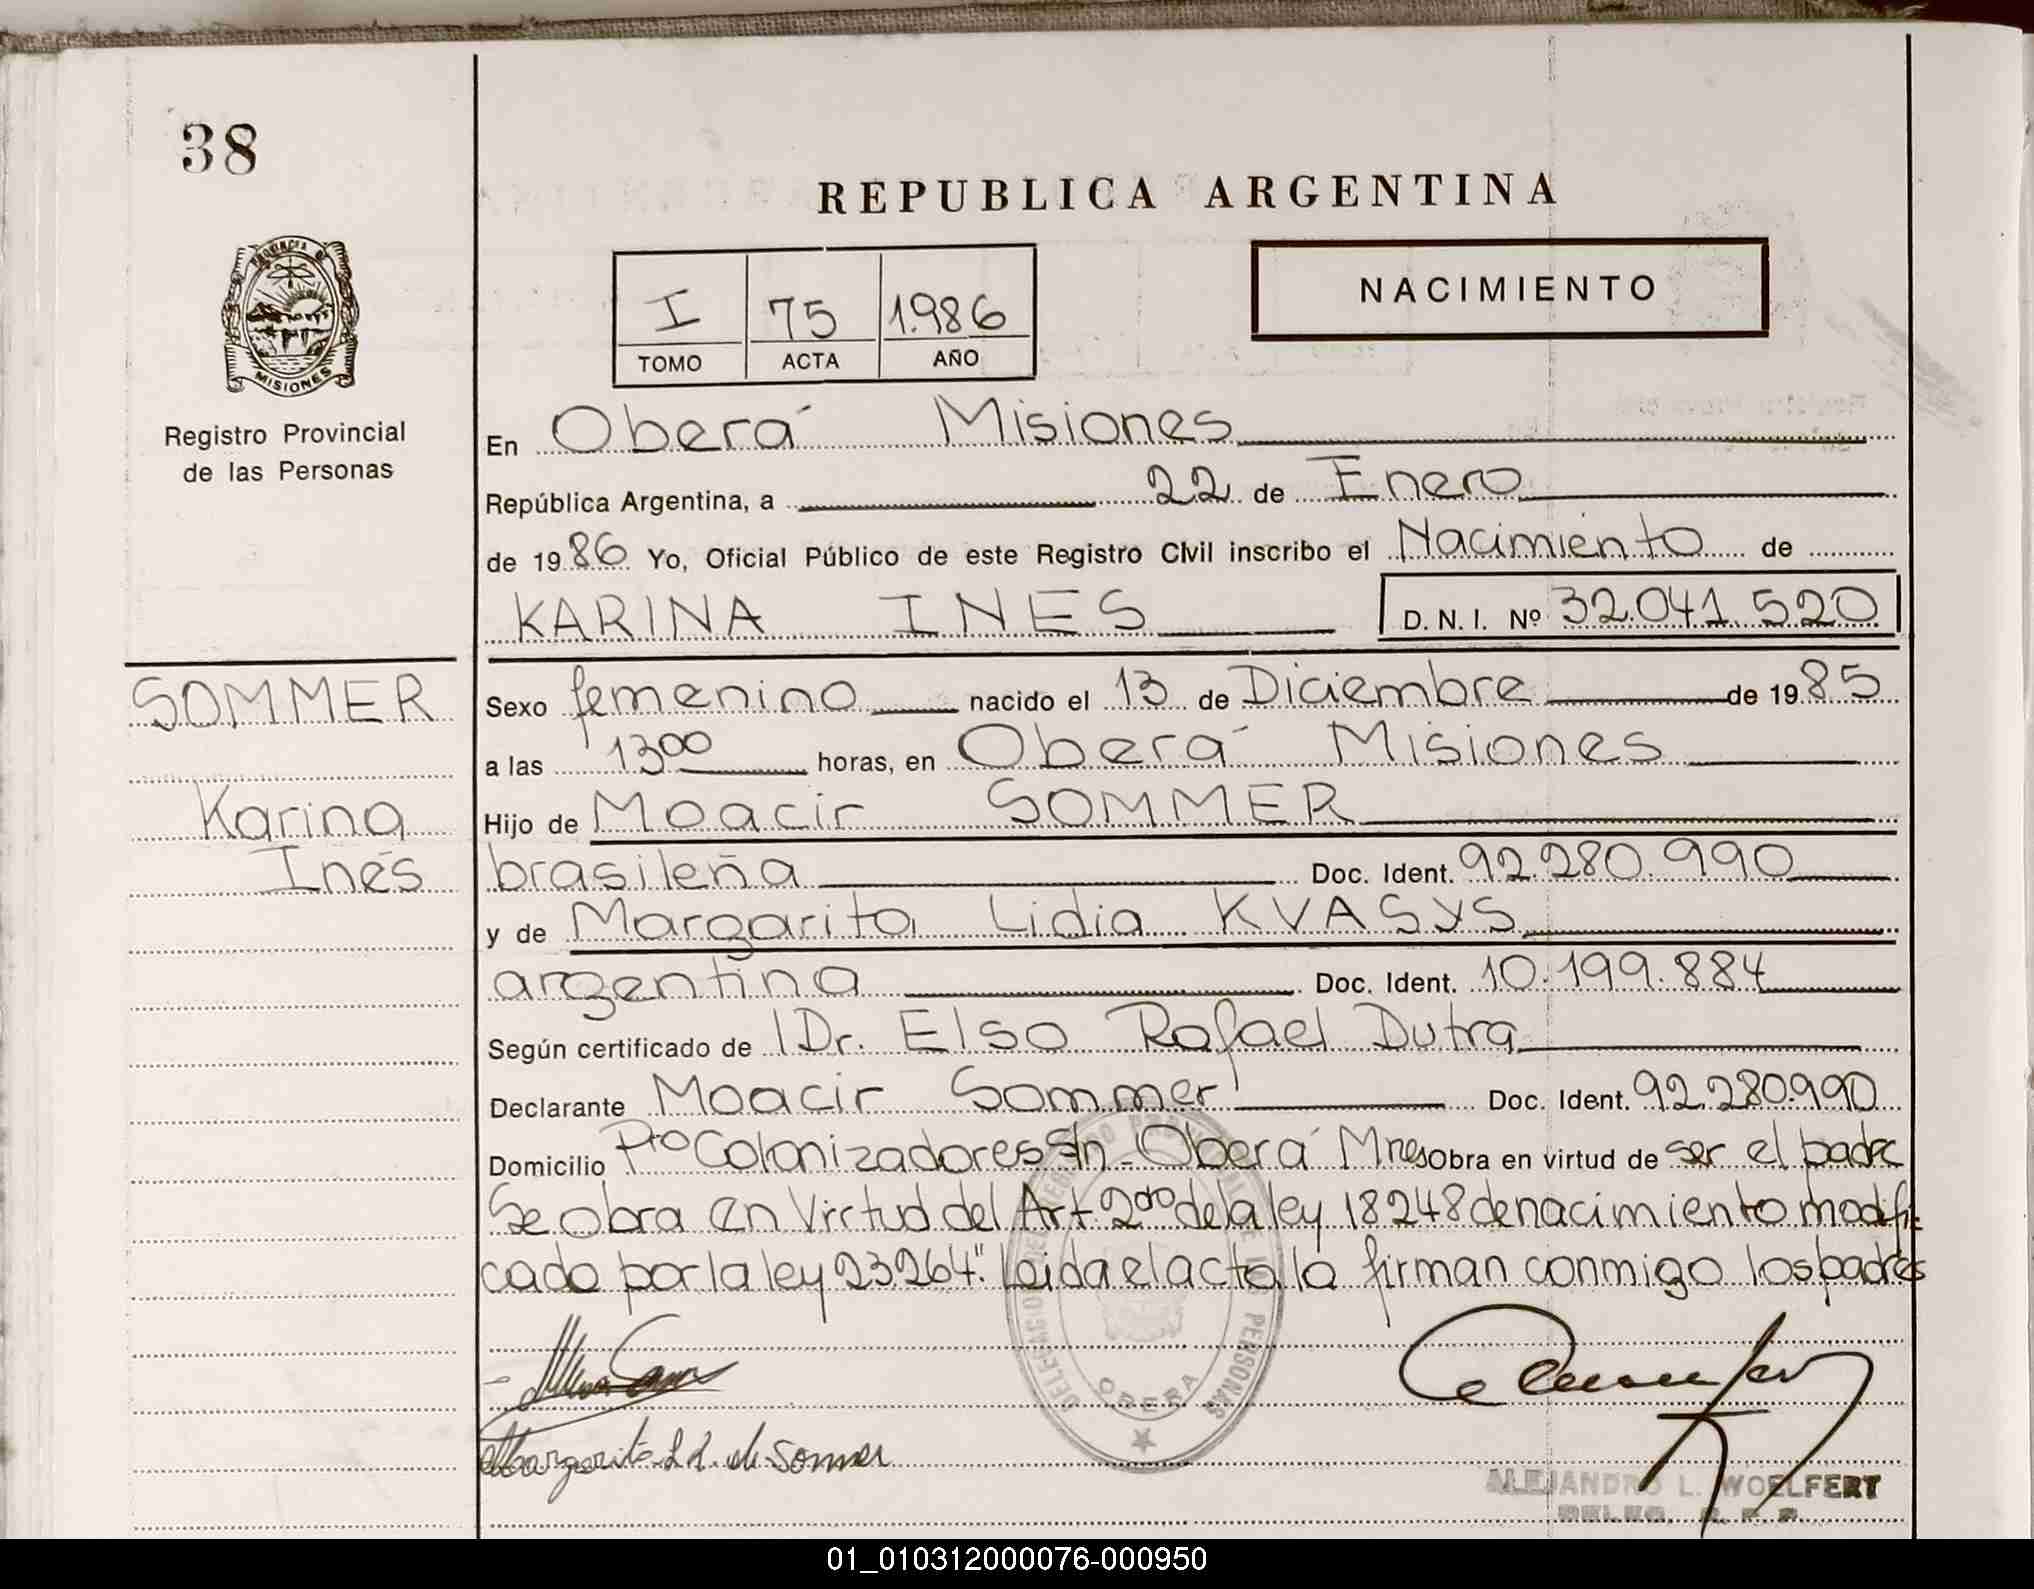 38
REPUBLICA ARGENTINA
PROVINCIA DE
MISIONES
Registro Provincial
de las Personas
I 75 1.986
TOMO ACTA AÑO
NACIMIENTO
En Oberá Misiones
República Argentina, a 22 de Enero
de 1986 Yo, Oficial Público de este Registro Civil inscribo el Nacimiento de
KARINA INES D. N. I. Nº 32.041.520
SOMMER
Karina
Inés
Sexo femenino nacido el 13 de Diciembre de 1985
a las 1300 horas, en Oberá Misiones
Hijo de Moacir SOMMER
brasileña Doc. Ident. 92.280.990
y de Margarita Lidia KVASYS
argentina Doc. Ident. 10.199.884
Según certificado de Dr. Elso Rafael Dutra
Declarante Moacir Sommer Doc. Ident. 92.280.990
Domicilio Pto Colonizadores S/n - Oberá Mnes Obra en virtud de ser el padre
Se obra en Virrtud del Art 2do de la ley 18248 de nacimiento modifi-
cado por la ley 23.264". Leida el acta la firman conmigo los padres
Margarita L K. de Sommer
OBERA
ALEJANDRO L. WOELFERT
DELEG. R. P. P.
01_010312000076-000950